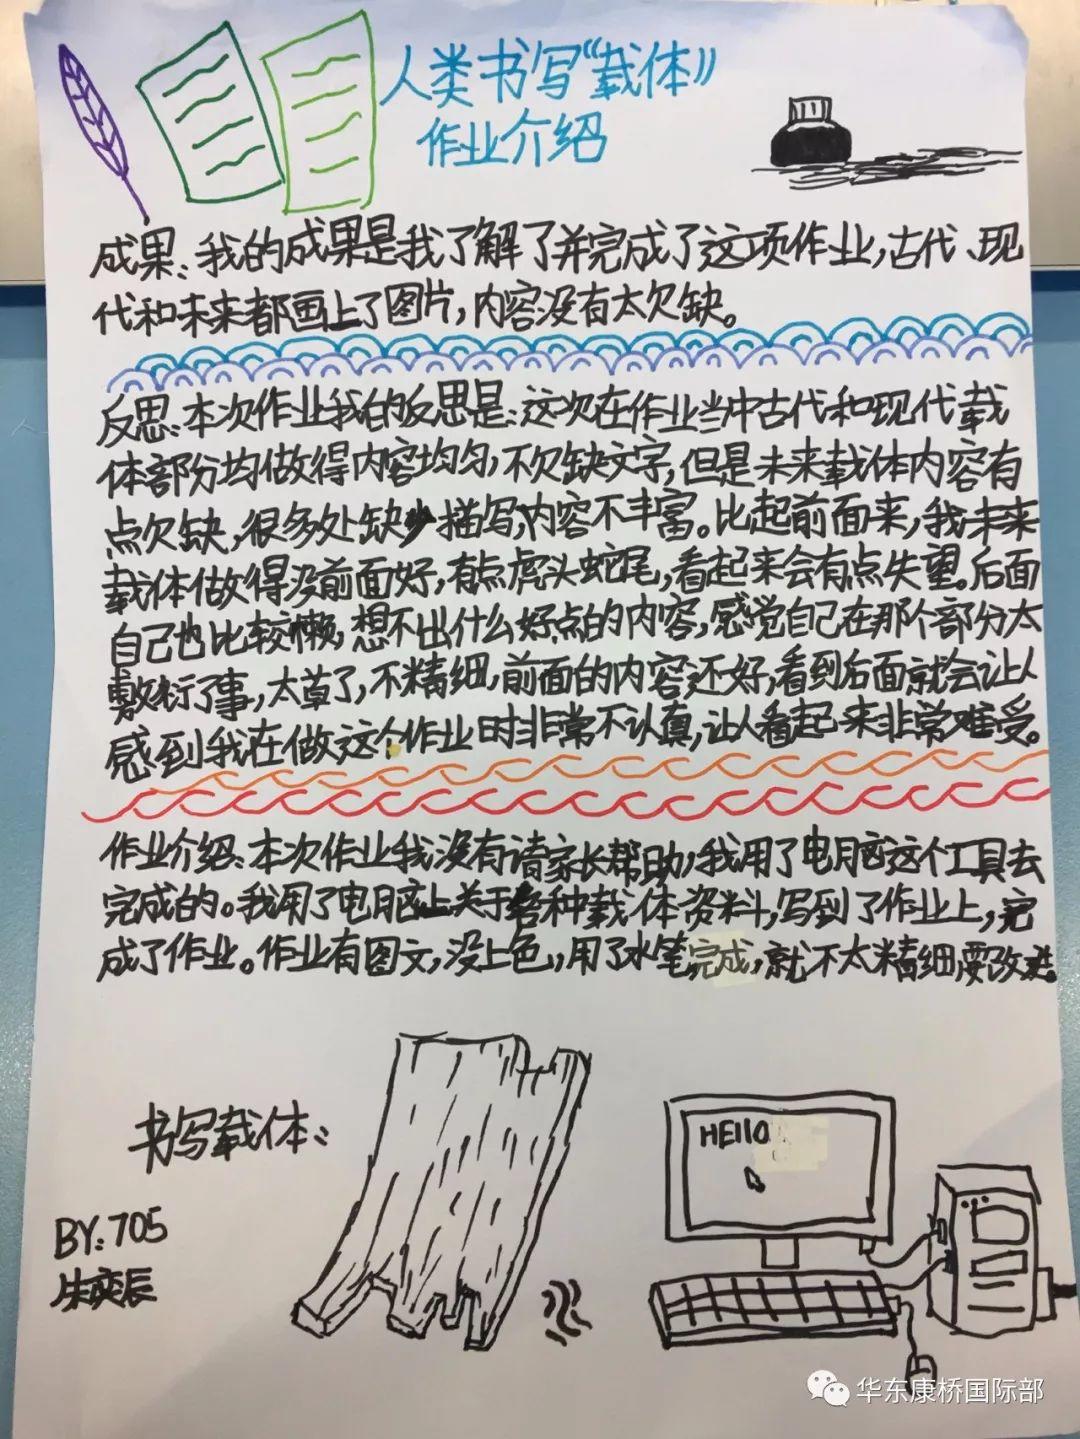 人类书写“载体”
作业介绍
成果:我的成果是我了解了并完成了这项作业,古代、现
代和未来都画上了图片,内容没有太欠缺。
反思:本次作业我的反思是:这次在作业当中古代和现代载
体部分均做得内容均匀,不欠缺文字,但是未来载体内容有
点欠缺,很多处缺少描写,内容不丰富。比起前面来,我未来
载体做得没前面好,有点虎头蛇尾,看起来会有点失望。后面
自己也比较懒,想不出什么好点的内容,感觉自己在那个部分太
敷衍了事,太草了,不精细,前面的内容还好,看到后面就会让人
感到我在做这个作业时非常不认真,让人看起来非常难受。
作业介绍:本次作业我没有请家长帮助,我用了电脑这个工具去
完成的。我用了电脑上关于各种载体资料,写到了作业上,完
成了作业。作业有图文,没上色,用了水笔完成,就不太精细要改进。
书写载体:
HEllO
BY:705
朱奕辰
华东康桥国际部